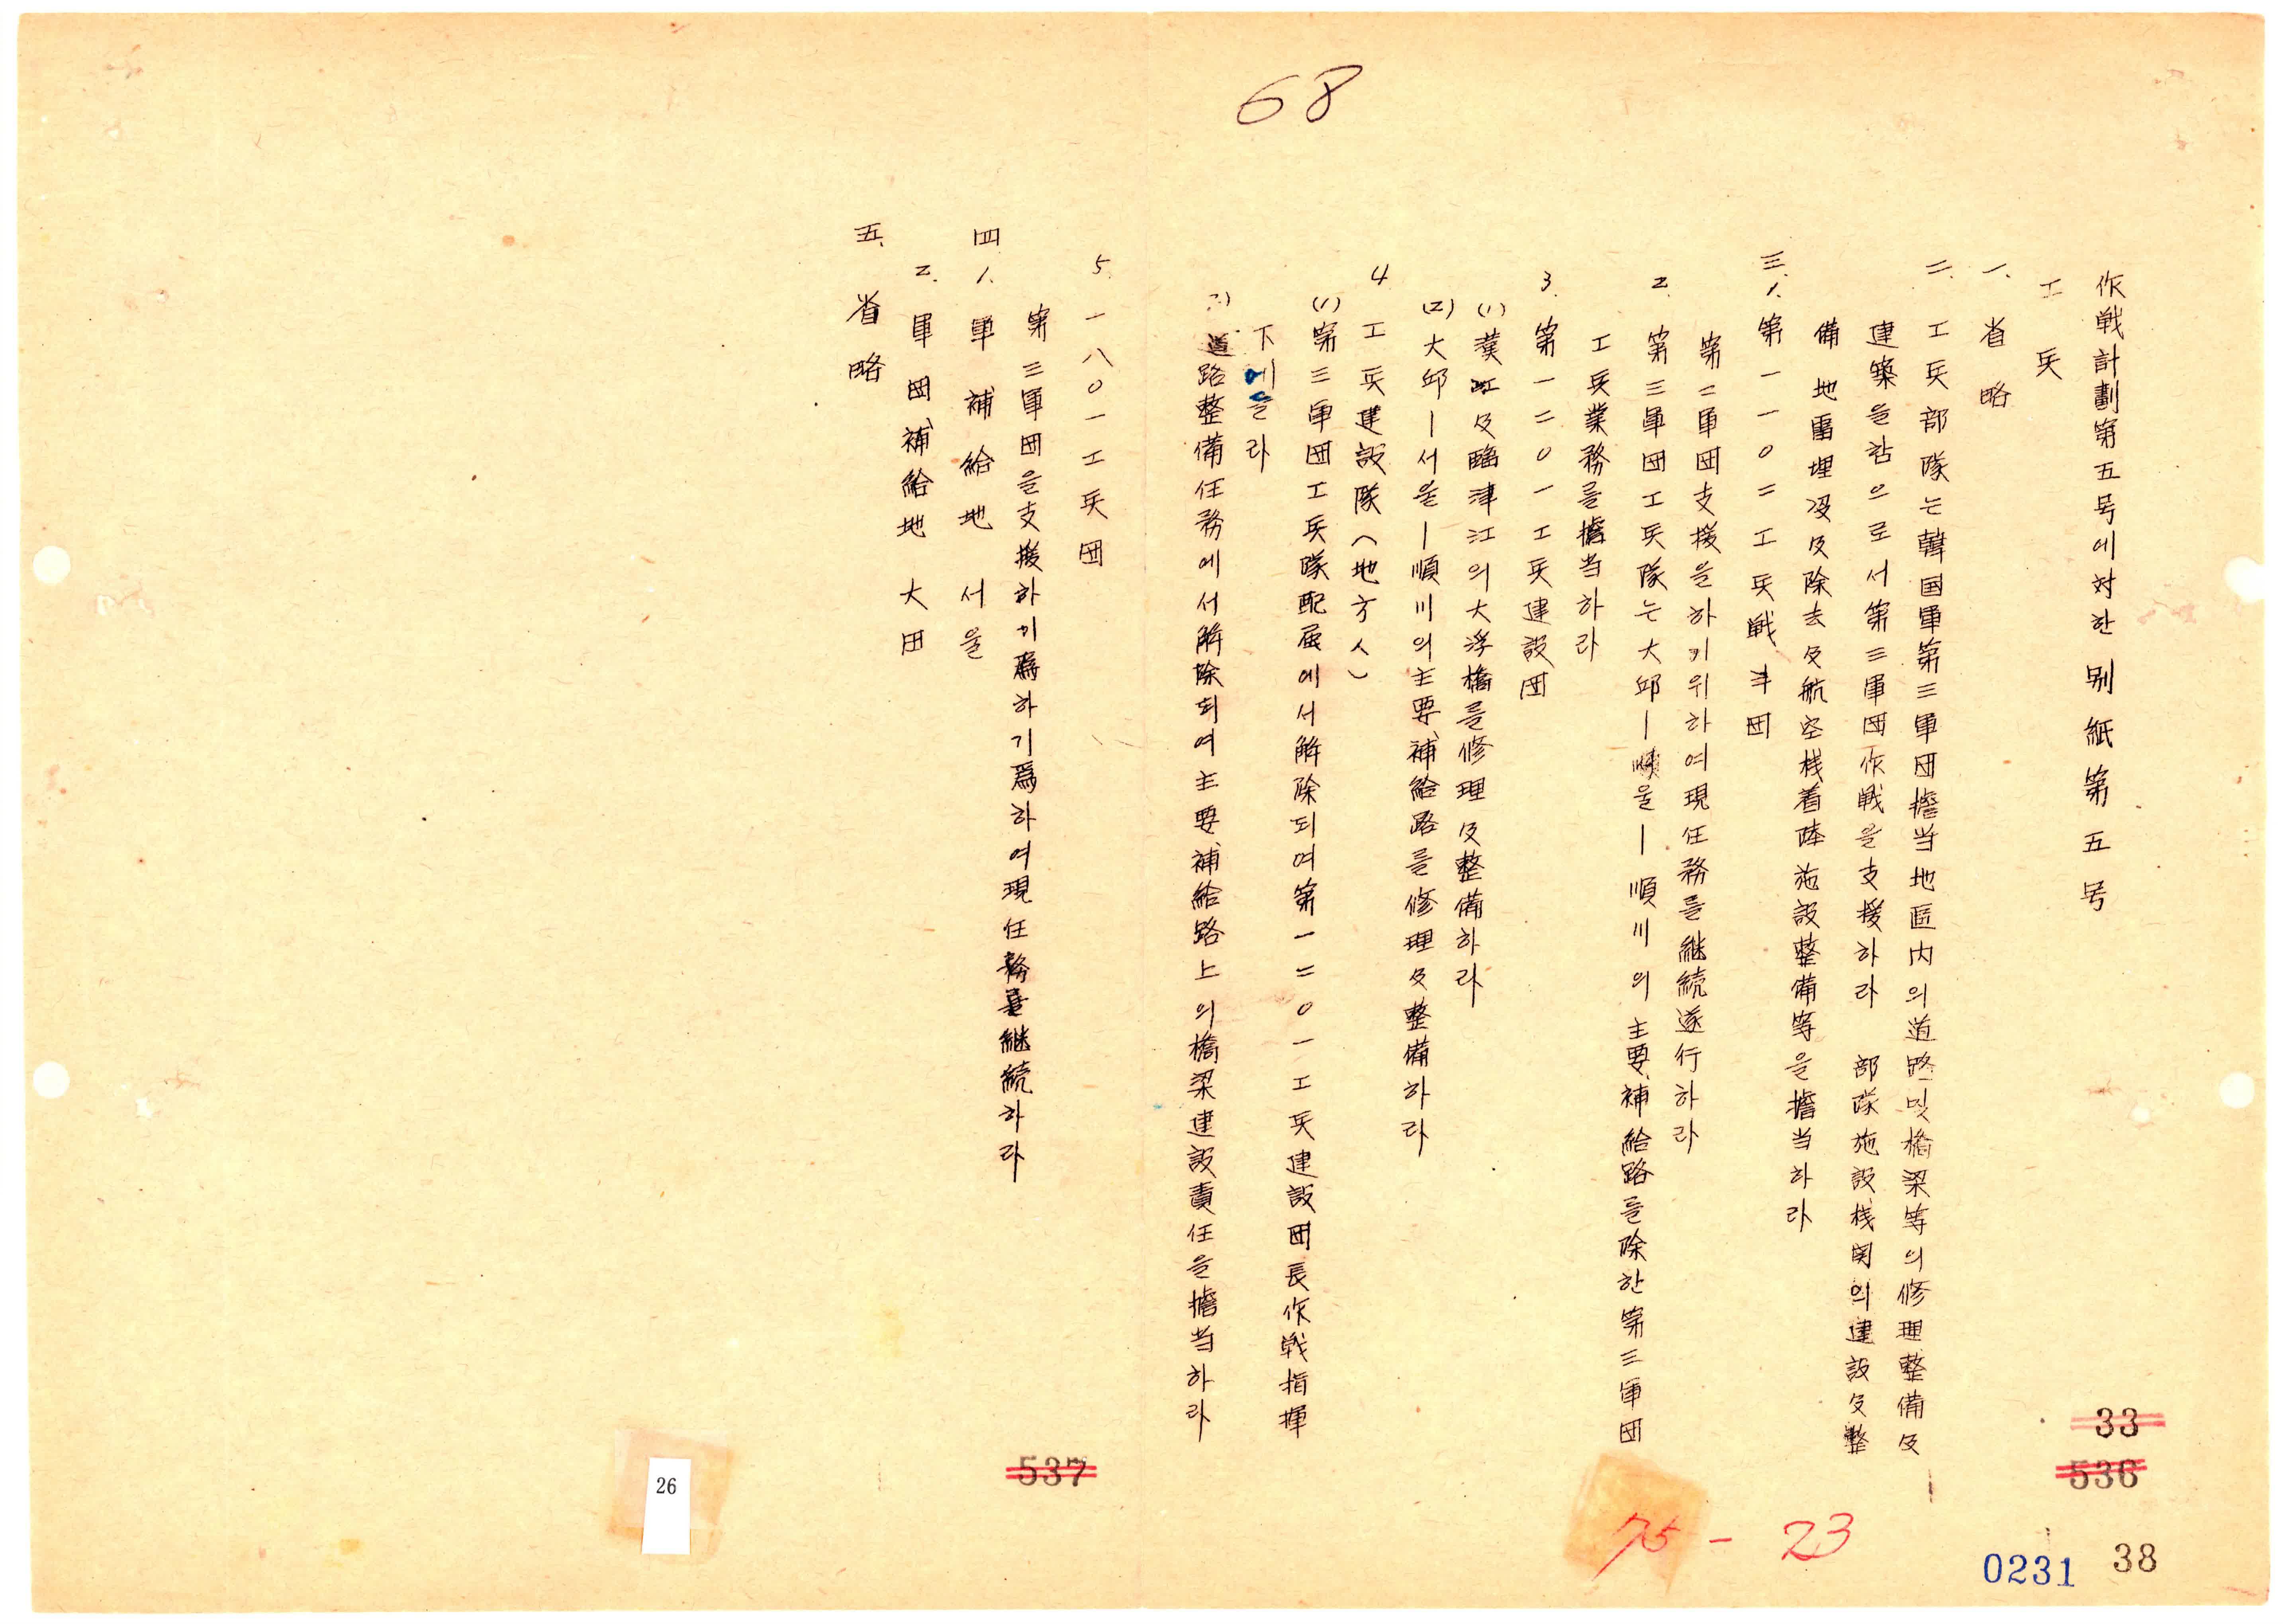 68
作戦計劃第五号에対한别紙第五号
工兵
一. 省略
二. 工兵部隊는韓国軍第三軍団擔当地區内의道路및橋梁等의修理整備及
建築을함으로서第三軍団作戦을支援하라 部隊施設機関의建設及整
備地雷埋没及除去及航空機着陸施設整備等을擔当하라
三. 1. 第一一〇二工兵戦斗団
第二軍団支援을하기위하여現任務를継続遂行하라
2. 第三軍団工兵隊는大邱―서울―順川의主要補給路를除한第三軍団
工兵業務를擔当하라
3. 第一二〇一工兵建設団
(1) 漢江及臨津江의大浮橋를修理及整備하라
(2) 大邱―서울―順川의主要補給路를修理及整備하라
4. 工兵建設隊(地方人)
(1) 第三軍団工兵隊配属에서解除되여第一二〇一工兵建設団長作戦指揮
下에들라
2) 道路整備任務에서解除되여主要補給路上의橋梁建設責任을擔当하라
5. 一八〇一工兵団
第三軍団을支援하기爲하기爲하여現任務를継続하라
四. 1. 軍補給地 서울
2. 軍団補給地 大田
五. 省略
33
536
537
26
75-23
0231
38